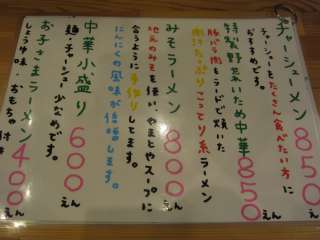 チャーシューメン 850
チャーシューをたくさん食べたい方に
おすすめです。
特製野菜いため中華 850
豚バラ肉をラードで炒いた
肉汁たっぷりこってり系ラーメン
みそラーメン 800えん
地元のみそを使い、やまとやスープに
合うように手作りしてます。
にんにくの風味が倍増します。
中華小盛り 600えん
麺・チャーシュー少なめです。
お子さまラーメン 400えん
しょうゆ味・おもちゃ付き